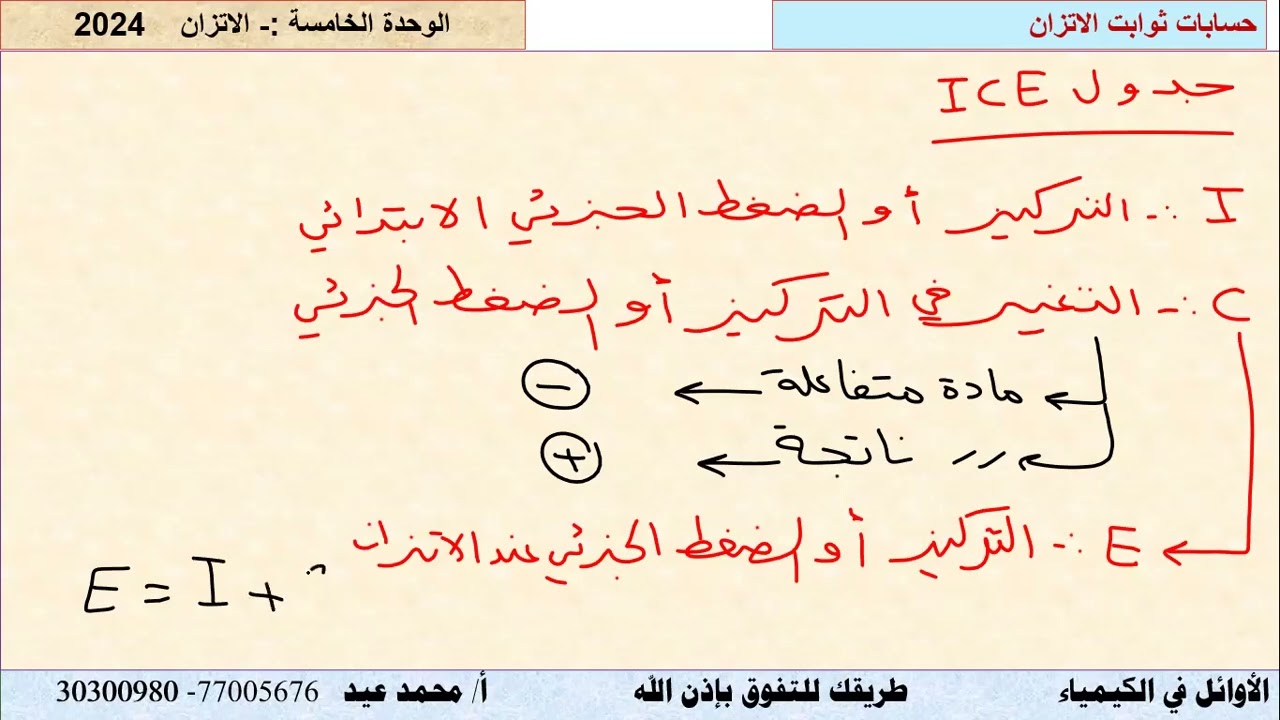 حسابات ثوابت الاتزان
الوحدة الخامسة :- الاتزان 2024
جدول ICE
I :- التركيز أو الضغط الجزئي الابتدائي
C :- التغير في التركيز أو الضغط الجزئي
مادة متفاعلة ← −
〃 ناتجة ← +
E :- التركيز أو الضغط الجزئي عند الاتزان
E = I +
الأوائل في الكيمياء طريقك للتفوق بإذن الله أ/ محمد عيد 77005676- 30300980